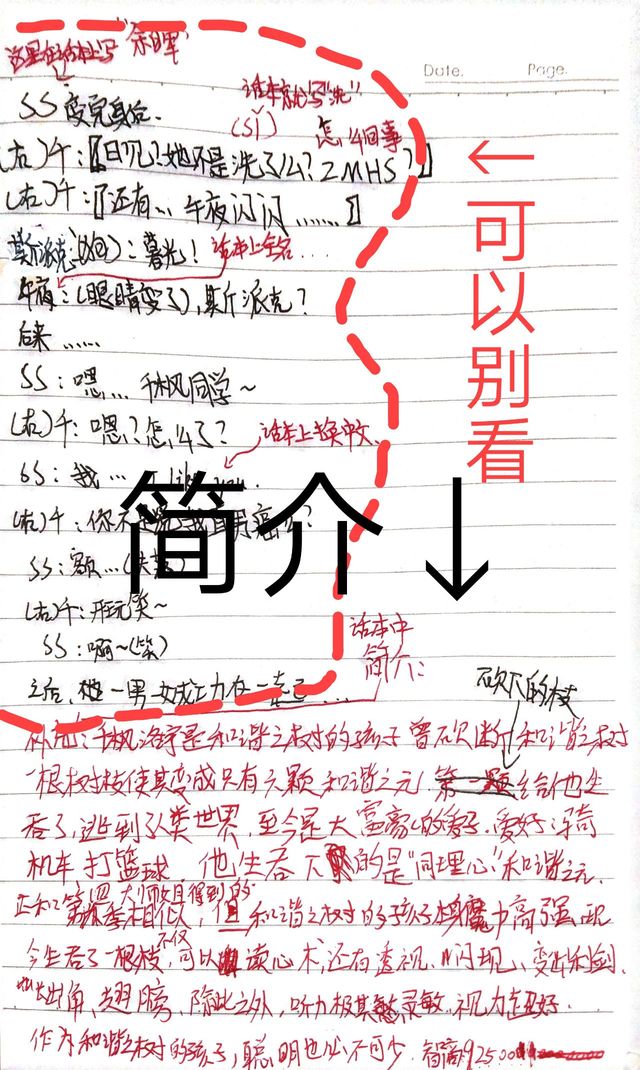 这里在话本上写"余晖"
Date.
Page.
SS变完身后.
话本就写"洗"
(右)千:〖日冗?她不是洗了么?ZMHS?〗
(sī)
怎么回事
(右)千:〖还有… 午夜闪闪……〗
斯派克:暮光!
话本上全名…
午夜:(眼睛变了),斯派克?
后来……
SS:嗯,… 千枫同学~
(右)千:嗯?怎么了?
话本上换中文.
SS:我… I like you.
(右)千:
SS:额…
(右)千:开玩笑~
SS:啊~(笑)
之后,他一男一女成功在一起
←可以别看
简介↓
话本中
简介:
砍下的枝
千枫洛宇是和谐之树的孩子 曾砍断和谐之树
一根树枝使其变成只有六颗和谐之元 给他生
吞了,逃到人类世界,至今是大富商的爱子.爱好:骑
机车 打篮球 他生吞下的是"同理心"和谐之元
正和第四大师妹且得到的
相似,但和谐之树的孩子魔力高强,现
今生吞了一根枝,不仅可以读心术,还有透视、闪现、变出利剑.
长出角,翅膀,除此之外,听力极其灵敏.视力超好.
作为和谐之树的孩子,聪明也必不可少.智商92500